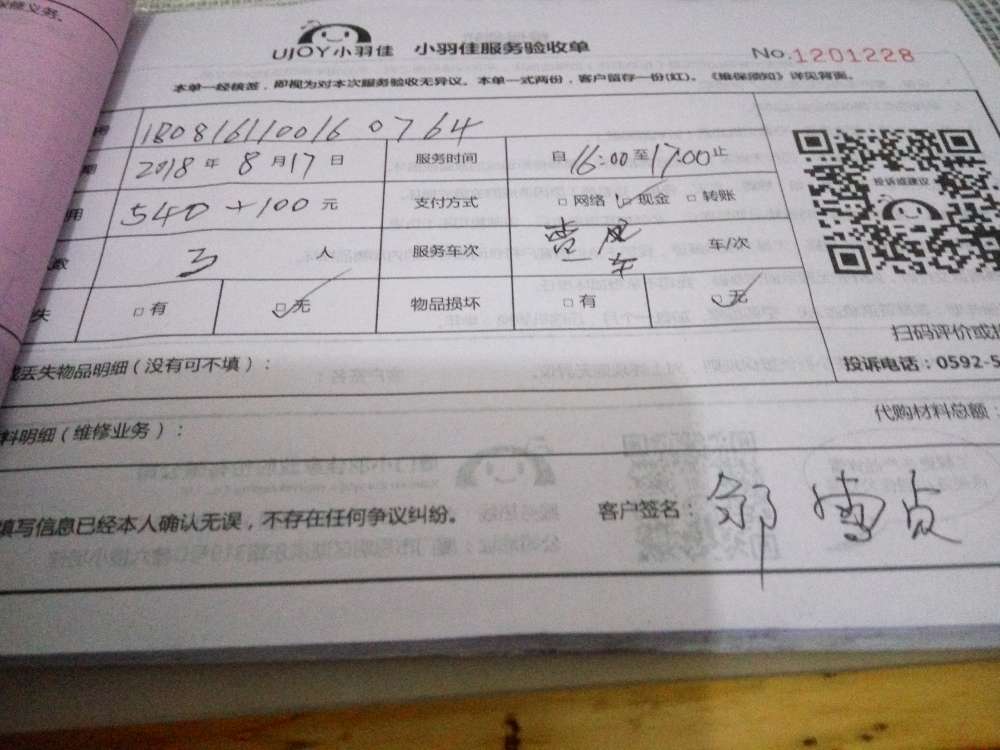 UJOY小羽佳 小羽佳服务验收单
No.1201228
本单一经核签，即视为对本次服务验收无异议。本单一式两份，客户留存一份(红)。《维保须知》详见背面。
180816110016 0764
期 2018 年 8 月 17 日 服务时间 自 16:00 至 17:00 止
用 540+100 元 支付方式 □ 网络 □ 现金 □ 转账
投诉或建议
数 3 人 服务车次 一车 车/次
失 □ 有 □ 无 物品损坏 □ 有 □ 无
扫码评价或
丢失物品明细（没有可不填）：
投诉电话：0592-5
料明细（维修业务）：
代购材料总额：
填写信息已经本人确认无误，不存在任何争议纠纷。 客户签名： 雪贞